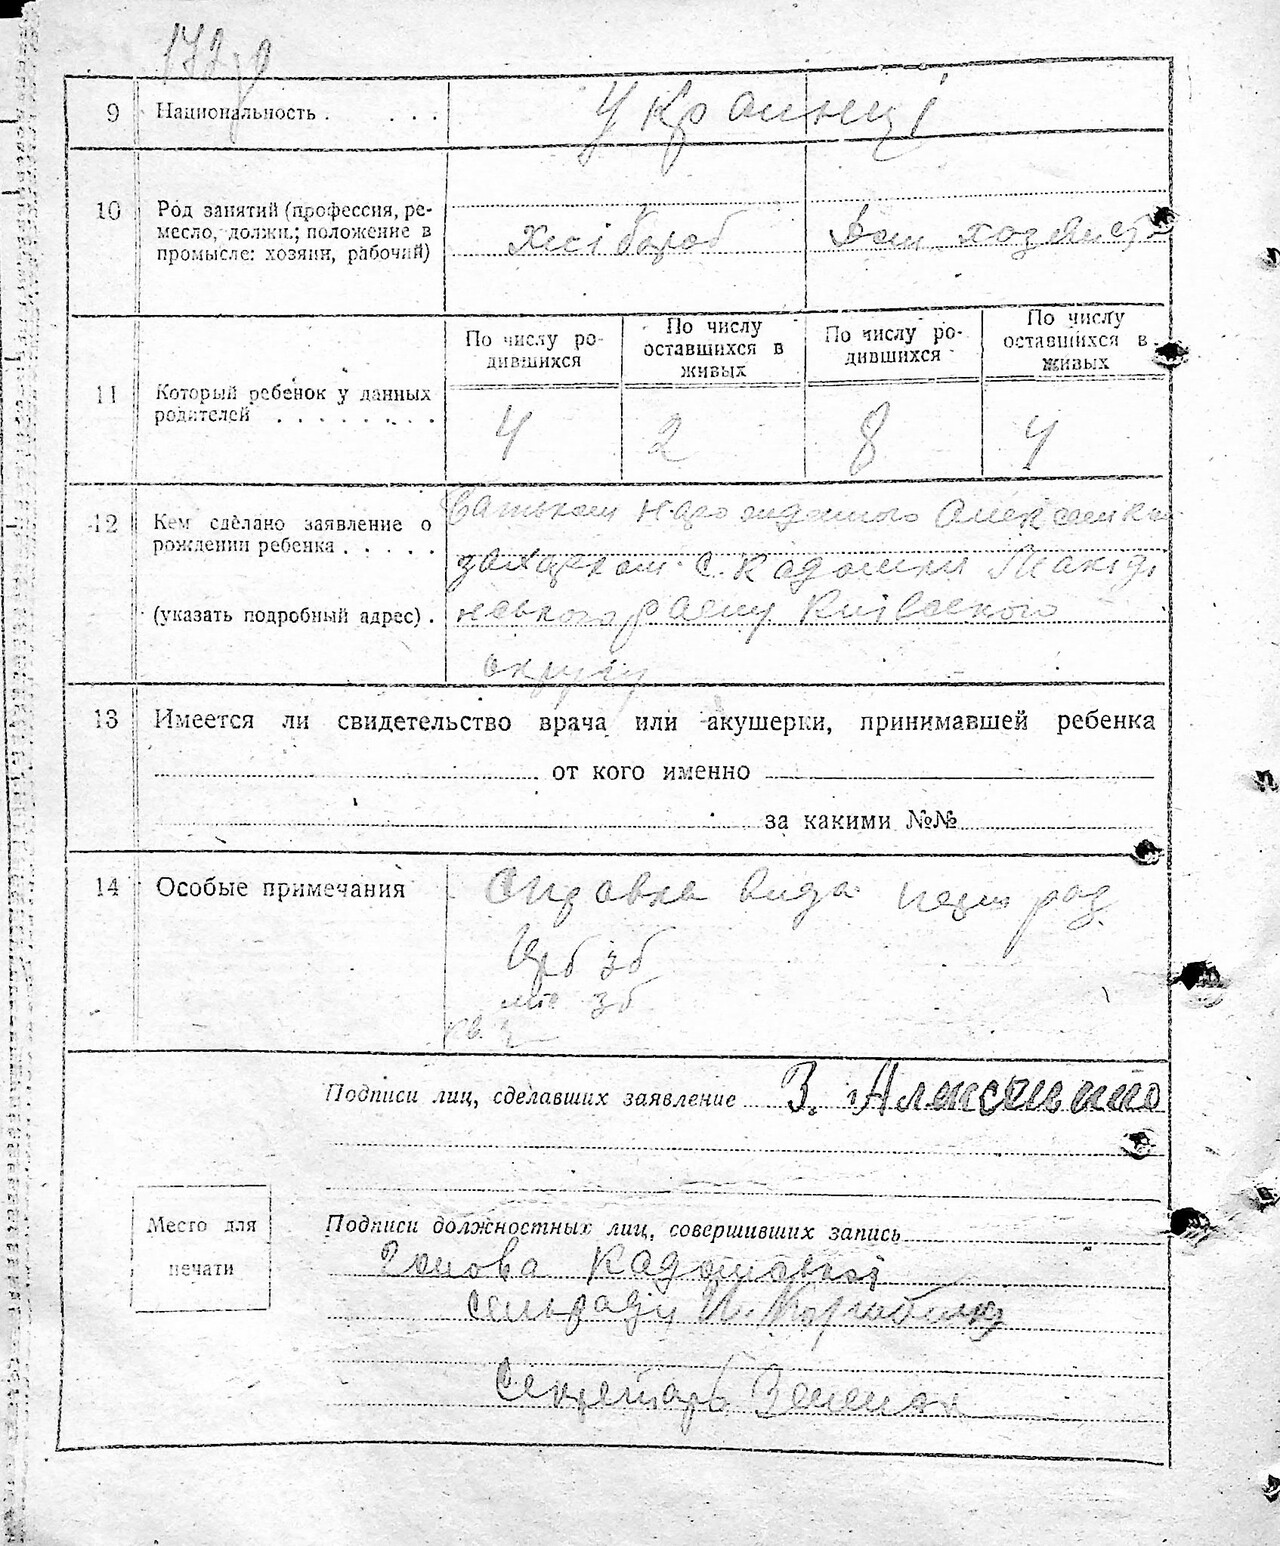 9 Национальность . . . .
Украинці
10 Род занятий (профессия, ре-
месло, должн.; положение в
промысле: хозяин, рабочий)
хлібороб
Дом хозяйст.
11 Который ребенок у данных
родителей . . . . . . . .
По числу ро-
дившихся
По числу
оставшихся в
живых
По числу ро-
дившихся
По числу
оставшихся в
живых
4 2 8 4
12 Кем сделано заявление о
рождении ребенка . . . . .
(указать подробный адрес) .
Батьком народженого
с. Кадомки
району Київського
округу
13 Имеется ли свидетельство врача или акушерки, принимавшей ребенка
от кого именно
за какими №№
14 Особые примечания
Справка вида
Подписи лиц, сделавших заявление З. Алексеенко
Место для
печати
Подписи должностных лиц, совершивших запись
Голова
сельради
Секретарь